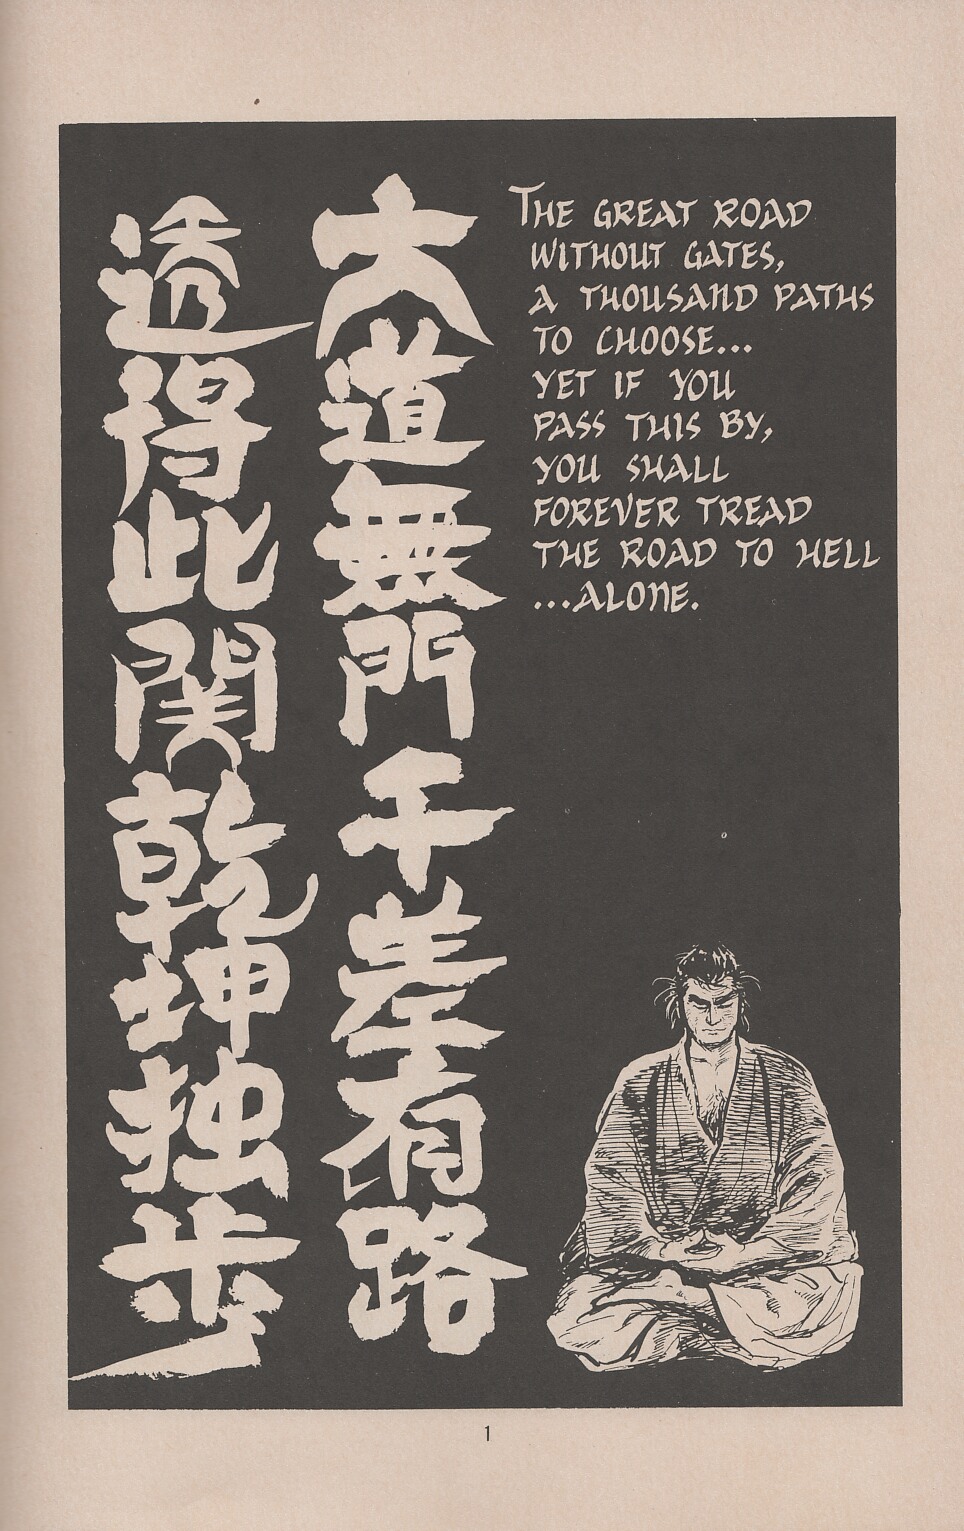 大道無門千差有路
透得此関乾坤独歩
THE GREAT ROAD
WITHOUT GATES,
A THOUSAND PATHS
TO CHOOSE...
YET IF YOU
PASS THIS BY,
YOU SHALL
FOREVER TREAD
THE ROAD TO HELL
...ALONE.
1